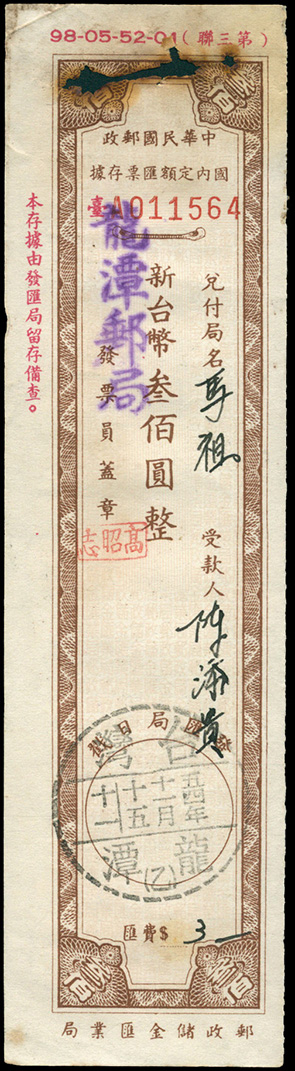 98-05-52-01(第三聯)
中華民國郵政
國內定額匯票存據
臺A011564
兌付局名 馬祖 受款人 陳添貴
新台幣叁佰圓整
龍潭郵局
發票員蓋章
高昭志
本存據由發匯局留存備查。
發匯局日戳
台灣
五四年
十一月
十五
十一
龍潭
(乙)
匯費$ 3—
郵政儲金匯業局